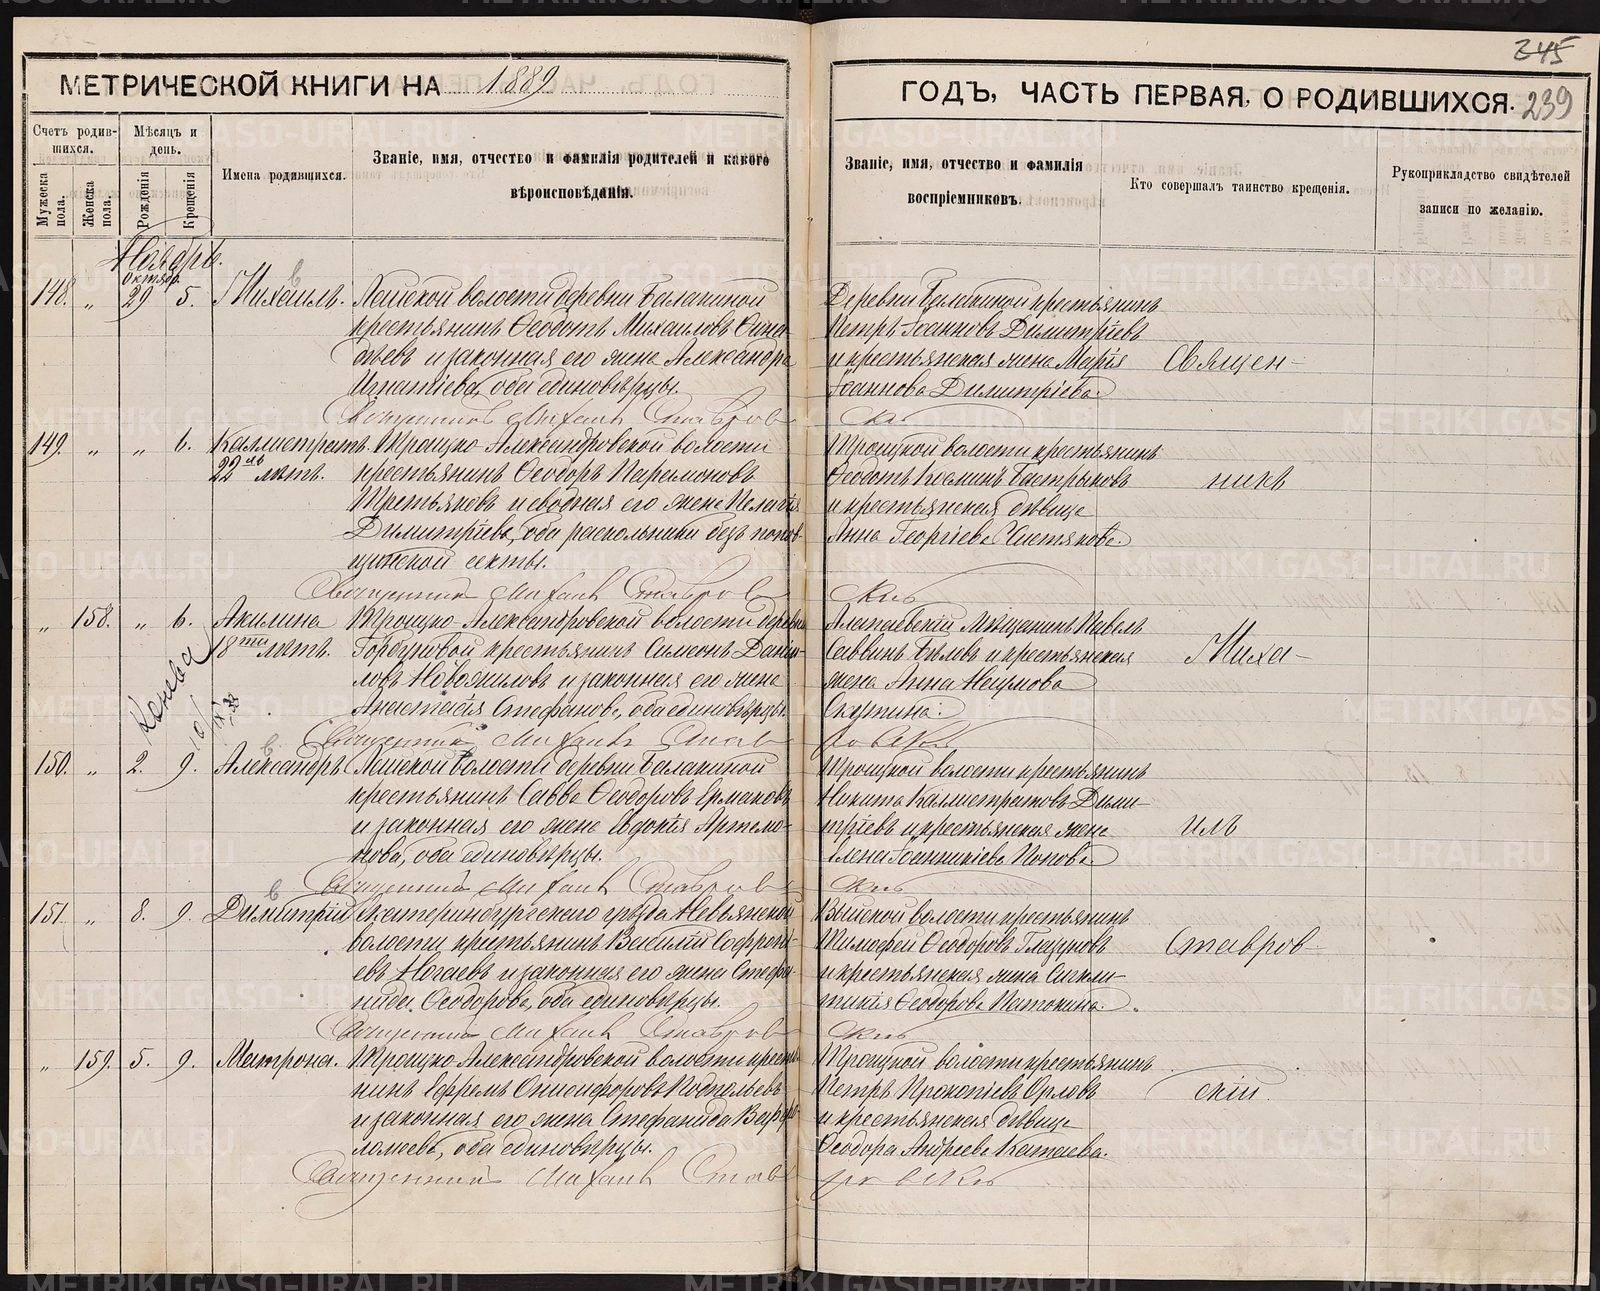 245
МЕТРИЧЕСКОЙ КНИГИ НА 1889
ГОДЪ, ЧАСТЬ ПЕРВАЯ, О РОДИВШИХСЯ. 239
Счетъ родив-
шихся.
Мужеска пола.
Женска пола.
Мѣсяцъ и день.
Рожденія
Крещенія
Имена родившихся.
Званіе, имя, отчество и фамилія родителей и какого
вѣроисповѣданія.
Званіе, имя, отчество и фамилія
воспріемниковъ.
Кто совершалъ таинство крещенія.
Рукоприкладство свидѣтелей
записи по желанію.
Ноябрь.
октяб.
148. „ 29 5. Михаилъ.
Лайской волости деревни Балакиной
крестьянинъ Ѳеодотъ Михаиловъ
и законная его жена Александра
Игнатіева, оба единовѣрцы.
Священникъ Михаилъ Ставровскій
Деревни Балакиной крестьянинъ
Петръ Іоанновъ Димитріевъ
и крестьянская жена Марія
Іоаннова Димитріева.
Священ-
149. „ „ 6. Каллистратъ
22 лѣтъ.
Троицко-Александровской волости
крестьянинъ Ѳеодоръ Парамоновъ
Третьяковъ и сводная его жена Пелагія
Димитріева, оба раскольники безъ попов-
щинской секты.
Священникъ Михаилъ Ставровскій
Троицкой волости крестьянинъ
Ѳеодотъ Косминъ Бастрыковъ
и крестьянская дѣвица
Анна Георгіева Чистякова.
никъ
„ 158. „ 6. Акилина
18ти лѣтъ.
Троицко-Александровской волости деревни
Горбуновой крестьянинъ Симеонъ Дании-
ловъ Новожиловъ и законная его жена
Анастасія Стефанова, оба единовѣрцы.
Священникъ Михаилъ Ставровскій
Алапаевскій Мѣщанинъ Павелъ
Саввинъ Бѣловъ и крестьянская
жена Анна Наумова
Миха-
150. „ 2. 9. Александръ
Лайской волости деревни Балакиной
крестьянинъ Савва Ѳеодоровъ Ермаковъ
и законная его жена Евдокія Артемо-
нова, оба единовѣрцы.
Священникъ Михаилъ Ставровскій
Троицкой волости крестьянинъ
Никита Каллистратовъ Дими-
тріевъ и крестьянская жена
Елена Іоанникіева Попова
илъ
151. „ 8. 9. Димитрій
Екатеринбургскаго уѣзда Невьянской
волости крестьянинъ Василій Софроні-
евъ Ногаевъ и законная его жена Стефа-
нида Ѳеодорова, оба единовѣрцы.
Священникъ Михаилъ Ставровскій
Выйской волости крестьянинъ
Тимофей Ѳеодоровъ Глазуновъ
и крестьянская жена Сигкли-
тикія Ѳеодорова Патокина.
Ставров-
„ 159. 5. 9. Матрона.
Троицко-Александровской волости крестья-
нинъ Ефремъ Онисифоровъ
и законная его жена Стефанида Варѳо-
ломеева, оба единовѣрцы.
Священникъ Михаилъ Ставровскій
Троицкой волости крестьянинъ
Петръ Прокопіевъ Орловъ
и крестьянская дѣвица
Ѳеодора Андреева Катаева.
скій.
METRIKI.GASO-URAL.RU